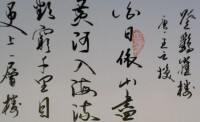 登鹳雀楼
唐 王之涣
白日依山盡
黄河入海流
欲窮千里目
更上一層樓